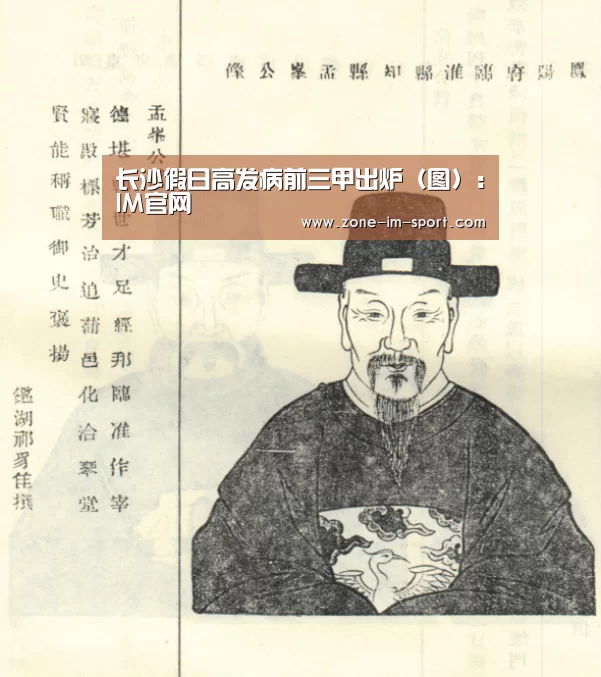 鳳陽府臨淮縣知縣孟峯公像
长沙假日高发病前三甲出炉（图）：
IM官网
www.zone-im-sport.com
孟峯公
德堪世才足經邦臨淮作宰
寢殿標芳治追蒲邑化洽琴堂
賢能稱職御史褒揚
鑑湖祁豸佳撰